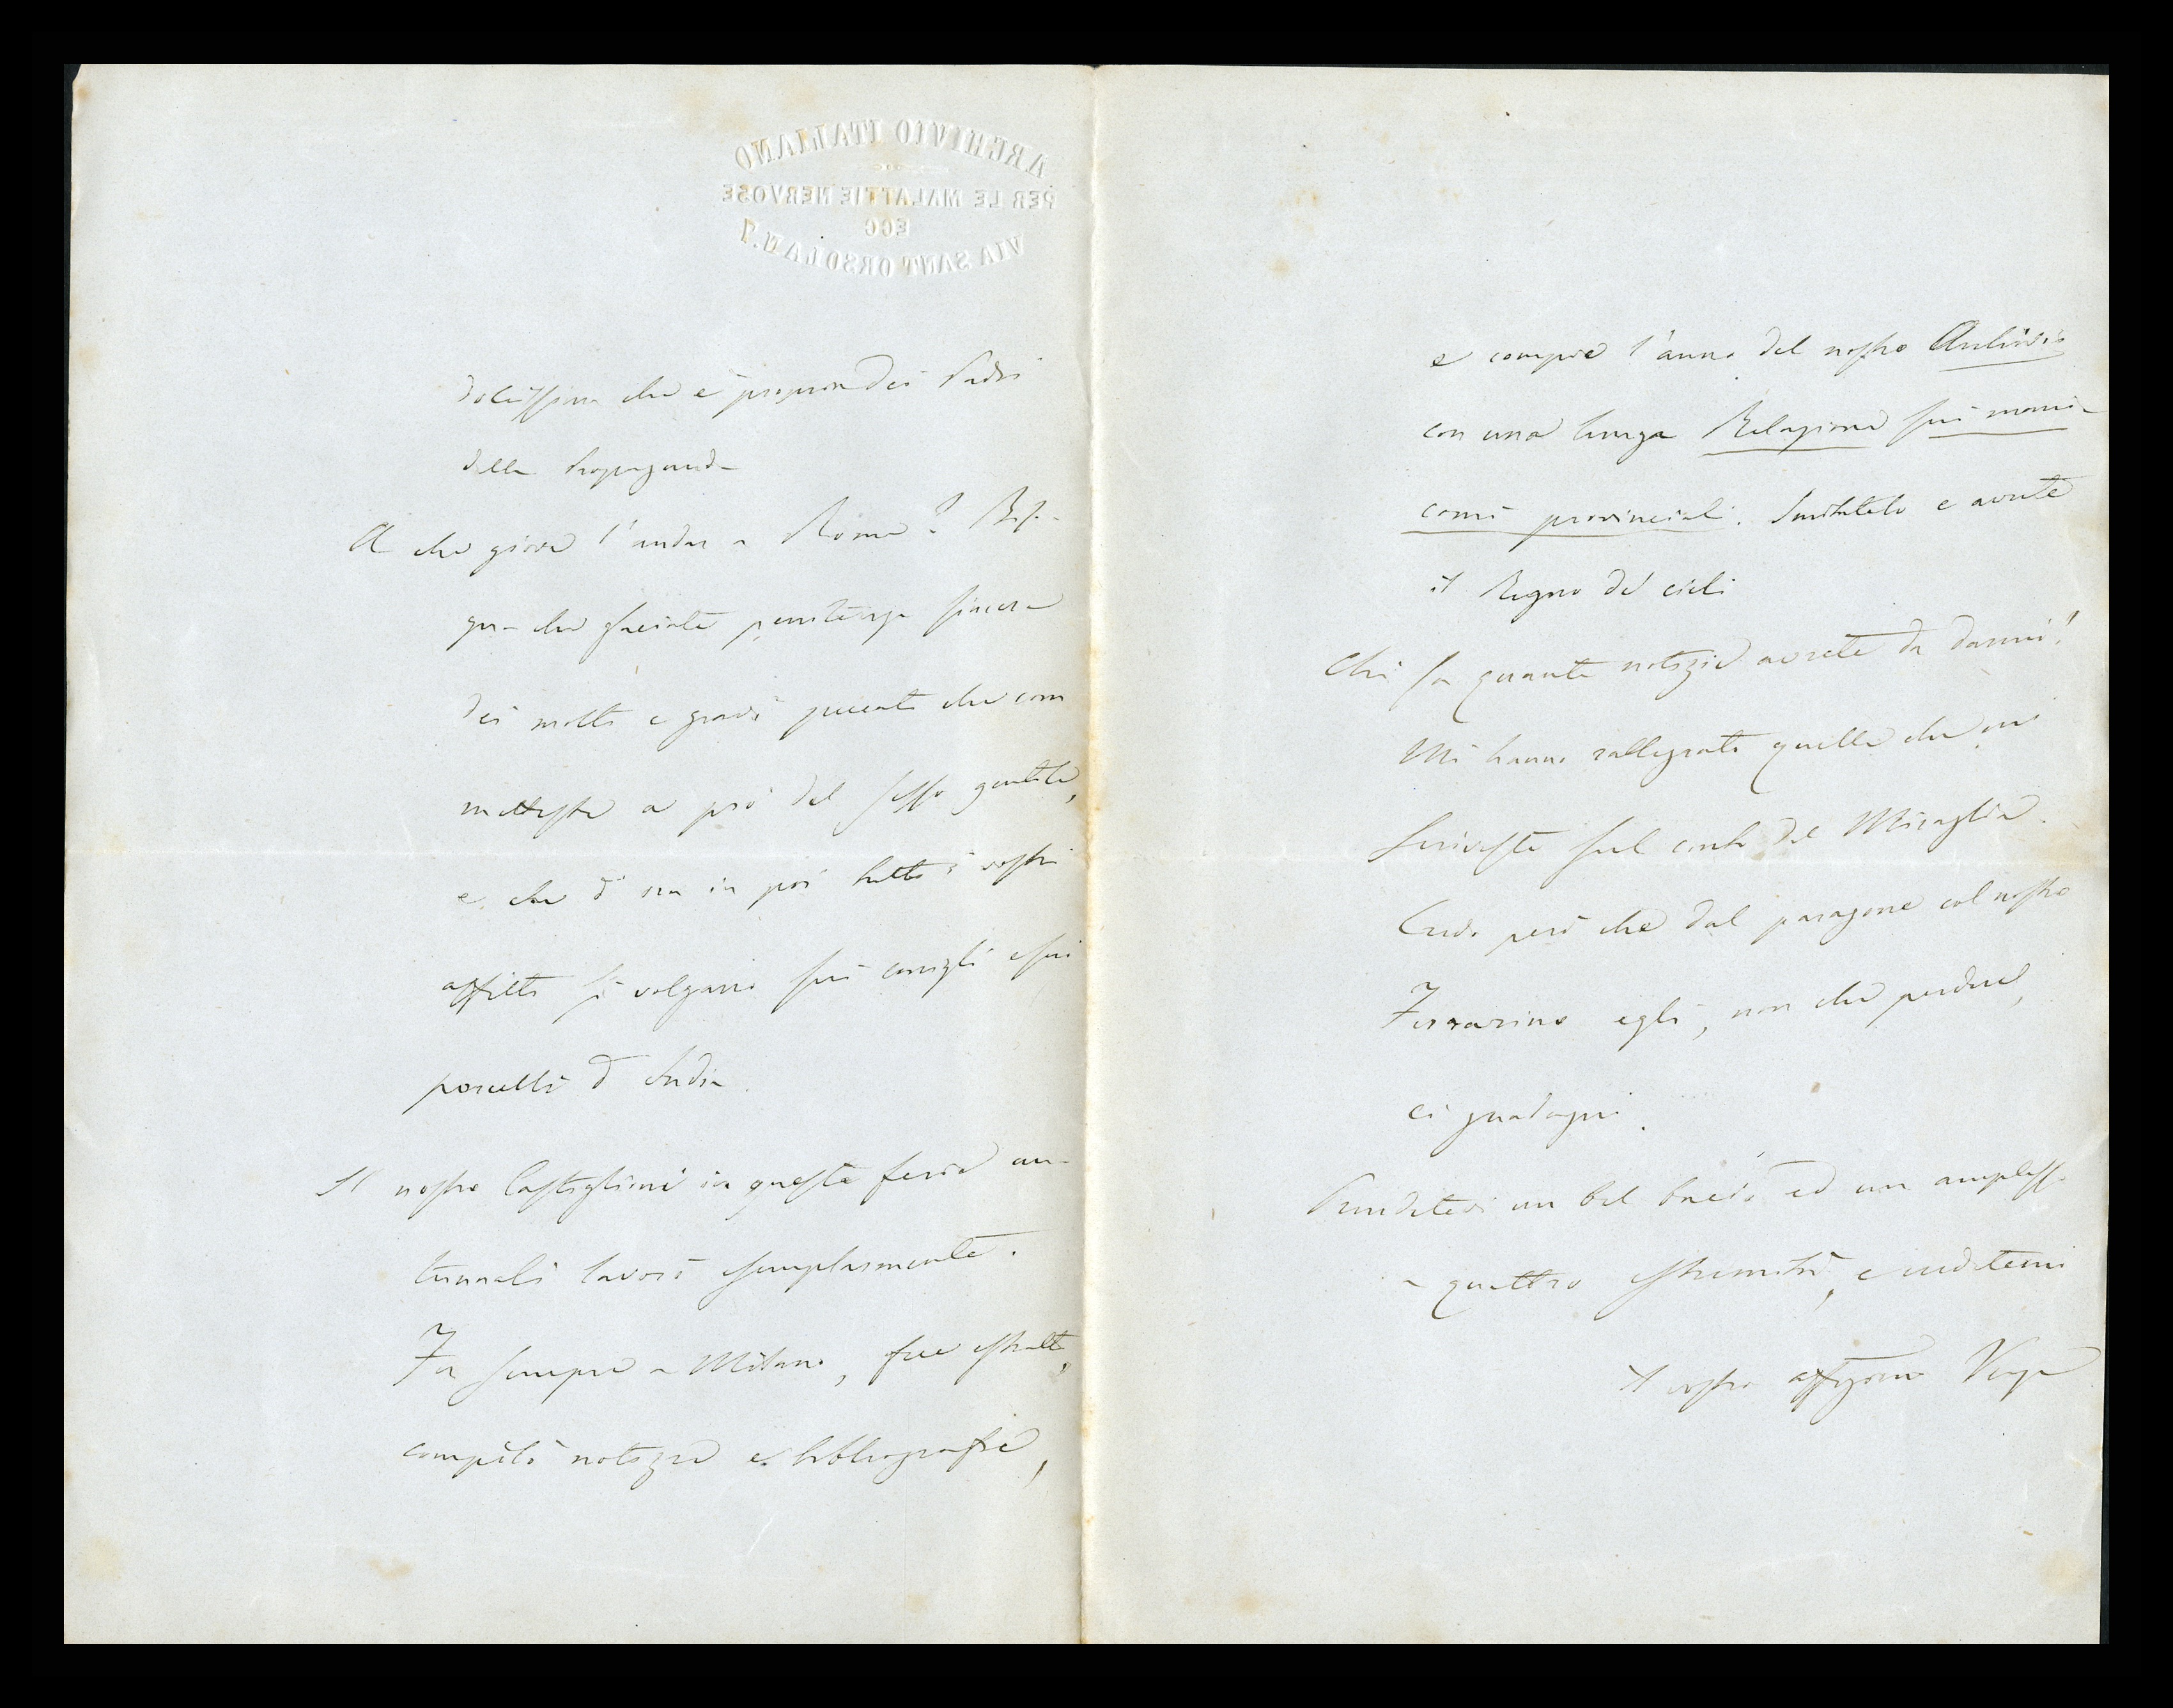 ARCHIVIO ITALIANO
PER LE MALATTIE NERVOSE
ECC
VIA SANT'ORSOLA N. 1
dolcissima che è propria dei Padri
della Propaganda
A che giova l'andar a Roma? Biso-
gna che facciate penitenza sincera
dei molti e gravi peccati che com
metteste a prò del sesso gentile,
e che d'ora in poi tutti i vostri
affetti si volgano sui conigli e sui
porcelli d'India.
Il nostro Castiglioni in queste ferie au-
tunnali lavorò esemplarmente.
Fu sempre a Milano, fece estratti,
compilò notizie e bibliografie,
e compie l'anno del nostro Archivio
con una lunga Relazione sui mani-
comi provinciali. Imitatelo e avrete
il Regno de' cieli
Chi sa quante notizie avrete da darmi!
Mi hanno rallegrato quelle che mi
scriveste sul conto del Miraglia.
Credo però che dal paragone col nostro
Ferrarino egli, non che perdere,
ci guadagni.
Prendetevi un bel bacio ed un amplesso
a quattro estremità, e credetemi
il vostro affezmo Verga